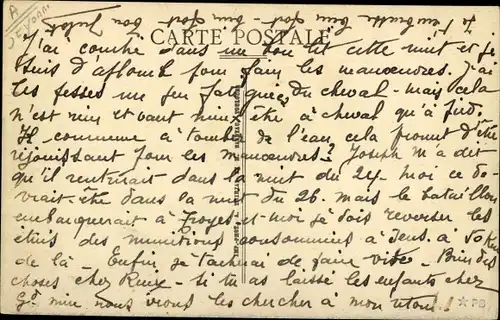 A
Je t'embrasse bien fort - bien fort bon
CARTE POSTALE
J'ai couché dans un bon lit cette nuit et je
suis d'aplomb pour faire les manoeuvres. J'ai
les fesses un peu fatiguées du cheval - mais cela
n'est rien et vaut mieux être à cheval qu'à pied.
Il commence à tomber de l'eau cela promet d'être
réjouissant pour les manoeuvres? Joseph m'a dit
qu'il rentrerait dans la nuit du 24 - moi ce de-
vrait être dans la nuit du 26. mais le bataillon
embarquerait à Troyes et moi je dois reverser les
étuis des munitions consommées à Sens. à 50 Km
de là Enfin je tacherai de faire vite. Bien des
choses chez Reix - si tu as laissé les enfants chez
Gd mère nous irons les chercher à mon retour!!
PB